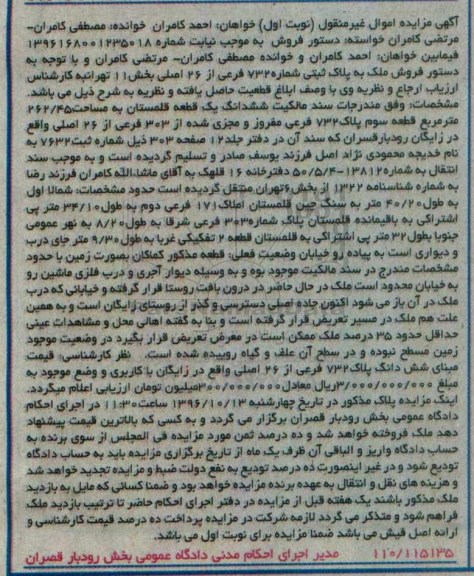 آگهی مزایده اموال غیرمنقول (نوبت اول) خواهان: احمد کامران خوانده: مصطفی کامران-
مرتضی کامران خواسته: دستور فروش به موجب نیابت شماره ۱۳۹۶۱۶۸۰۰۱۲۳۵۰۱۸
فیمابین خواهان: احمد کامران و خوانده مصطفی کامران- مرتضی کامران و با توجه به
دستور فروش ملک به پلاک ثبتی شماره۷۳۲ فرعی از ۲۶ اصلی بخش۱۱ تهرانبه کارشناس
ارزیاب ارجاع و نظریه وی با وصف ابلاغ قطعیت حاصل یافته و نظریه به شرح ذیل می باشد.
مشخصات: وفق مندرجات سند مالکیت ششدانگ یک قطعه قلمستان به مساحت۲۶۲/۴۵
مترمربع قطعه سوم پلاک۷۳۲ فرعی مفروز و مجزی شده از ۳۰۳ فرعی از ۲۶ اصلی واقع
در زایگان رودبارقصران که سند آن در دفتر جلد۱۲ صفحه ۳۰۳ ذیل شماره ثبت۷۶۳۲ به
نام خدیجه محمودی نژاد اصل فرزند یوسف صادر و تسلیم گردیده است و به موجب سند
انتقال به شماره۱۳۸۱۲-۵۰/۵/۴ دفترخانه ۱۶ قلهک به آقای ماشاءالله کامران فرزند رضا
به شماره شناسنامه ۱۳۲۲ از بخش۶تهران منتقل گردیده است حدود مشخصات: شمالا اول
به طول۴۰/۲۰ متر به سنگ چین قلمستان املاک۱۷۱ فرعی دوم به طول۳۴/۱۰ متر پی
اشتراکی به باقیمانده قلمستان پلاک شماره۳۰۳ فرعی شرقا به طول۸/۲۰ به نهر عمومی
جنوبا بطول۳۲ متر پی اشتراکی به قلمستان قطعه ۲ تفکیکی غربا به طول۹/۳۰ متر جای درب
و دیواری است به پیاده رو خیابان وضعیت فعلی: قطعه مذکور کماکان بصورت زمین با حدود
مشخصات مندرج در سند مالکیت موجود بوه و به وسیله دیوار آجری و درب فلزی ماشین رو
به خیابان محدود است ملک در حال حاضر در درون بافت روستا قرار گرفته و خیابانی که درب
ملک در آن باز می شود اکنون جاده اصلی دسترسی و گذر از روستای زایگان است و به همین
علت هم ملک در مسیر تعریض قرار گرفته است و بنا به گفته اهالی محل و مشاهدات عینی
حداقل حدود ۳۵ درصد ملک ممکن است در معرض تعریض قرار بگیرد در وضعیت موجود
زمین مسطح نبوده و در سطح آن علف و گیاه روییده شده است. نظر کارشناسی: قیمت
مبنای شش دانگ پلاک۷۳۲ فرعی از ۲۶ اصلی واقع در زایگان با کاربری و وضع موجود به
مبلغ ۳/۰۰۰/۰۰۰/۰۰۰ریال معادل۳۰۰/۰۰۰/۰۰۰میلیون تومان ارزیابی اعلام میگردد.
اینک مزایده پلاک مذکور در تاریخ چهارشنبه ۱۳۹۶/۱۰/۱۳ ساعت۱۱:۳۰ در اجرای احکام
دادگاه عمومی بخش رودبار قصران برگزار می گردد و به کسی که بالاترین قیمت پیشنهاد
دهد ملک فروخته خواهد شد و ده درصد ثمن مورد مزایده فی المجلس از سوی برنده به
حساب دادگاه واریز و الباقی آن ظرف یک ماه از تاریخ برگزاری مزایده باید به حساب دادگاه
تودیع شود و در غیر اینصورت ده درصد تودیع به نفع دولت ضبط و مزایده تجدید خواهد شد
و هزینه های نقل و انتقال به عهده برنده مزایده خواهد بود و ضمنا کسانی که مایل به بازدید
ملک مذکور باشند یک هفته قبل از مزایده در دفتر اجرای احکام حاضر تا ترتیب بازدید ملک
فراهم شود و متذکر می گردد لازمه شرکت در مزایده پرداخت ده درصد قیمت کارشناسی و
ارائه اصل فیش می باشد ضمنا مزایده برای نوبت اول می باشد.
۱۱۰/۱۱۵۱۳۵ مدیر اجرای احکام مدنی دادگاه عمومی بخش رودبار قصران